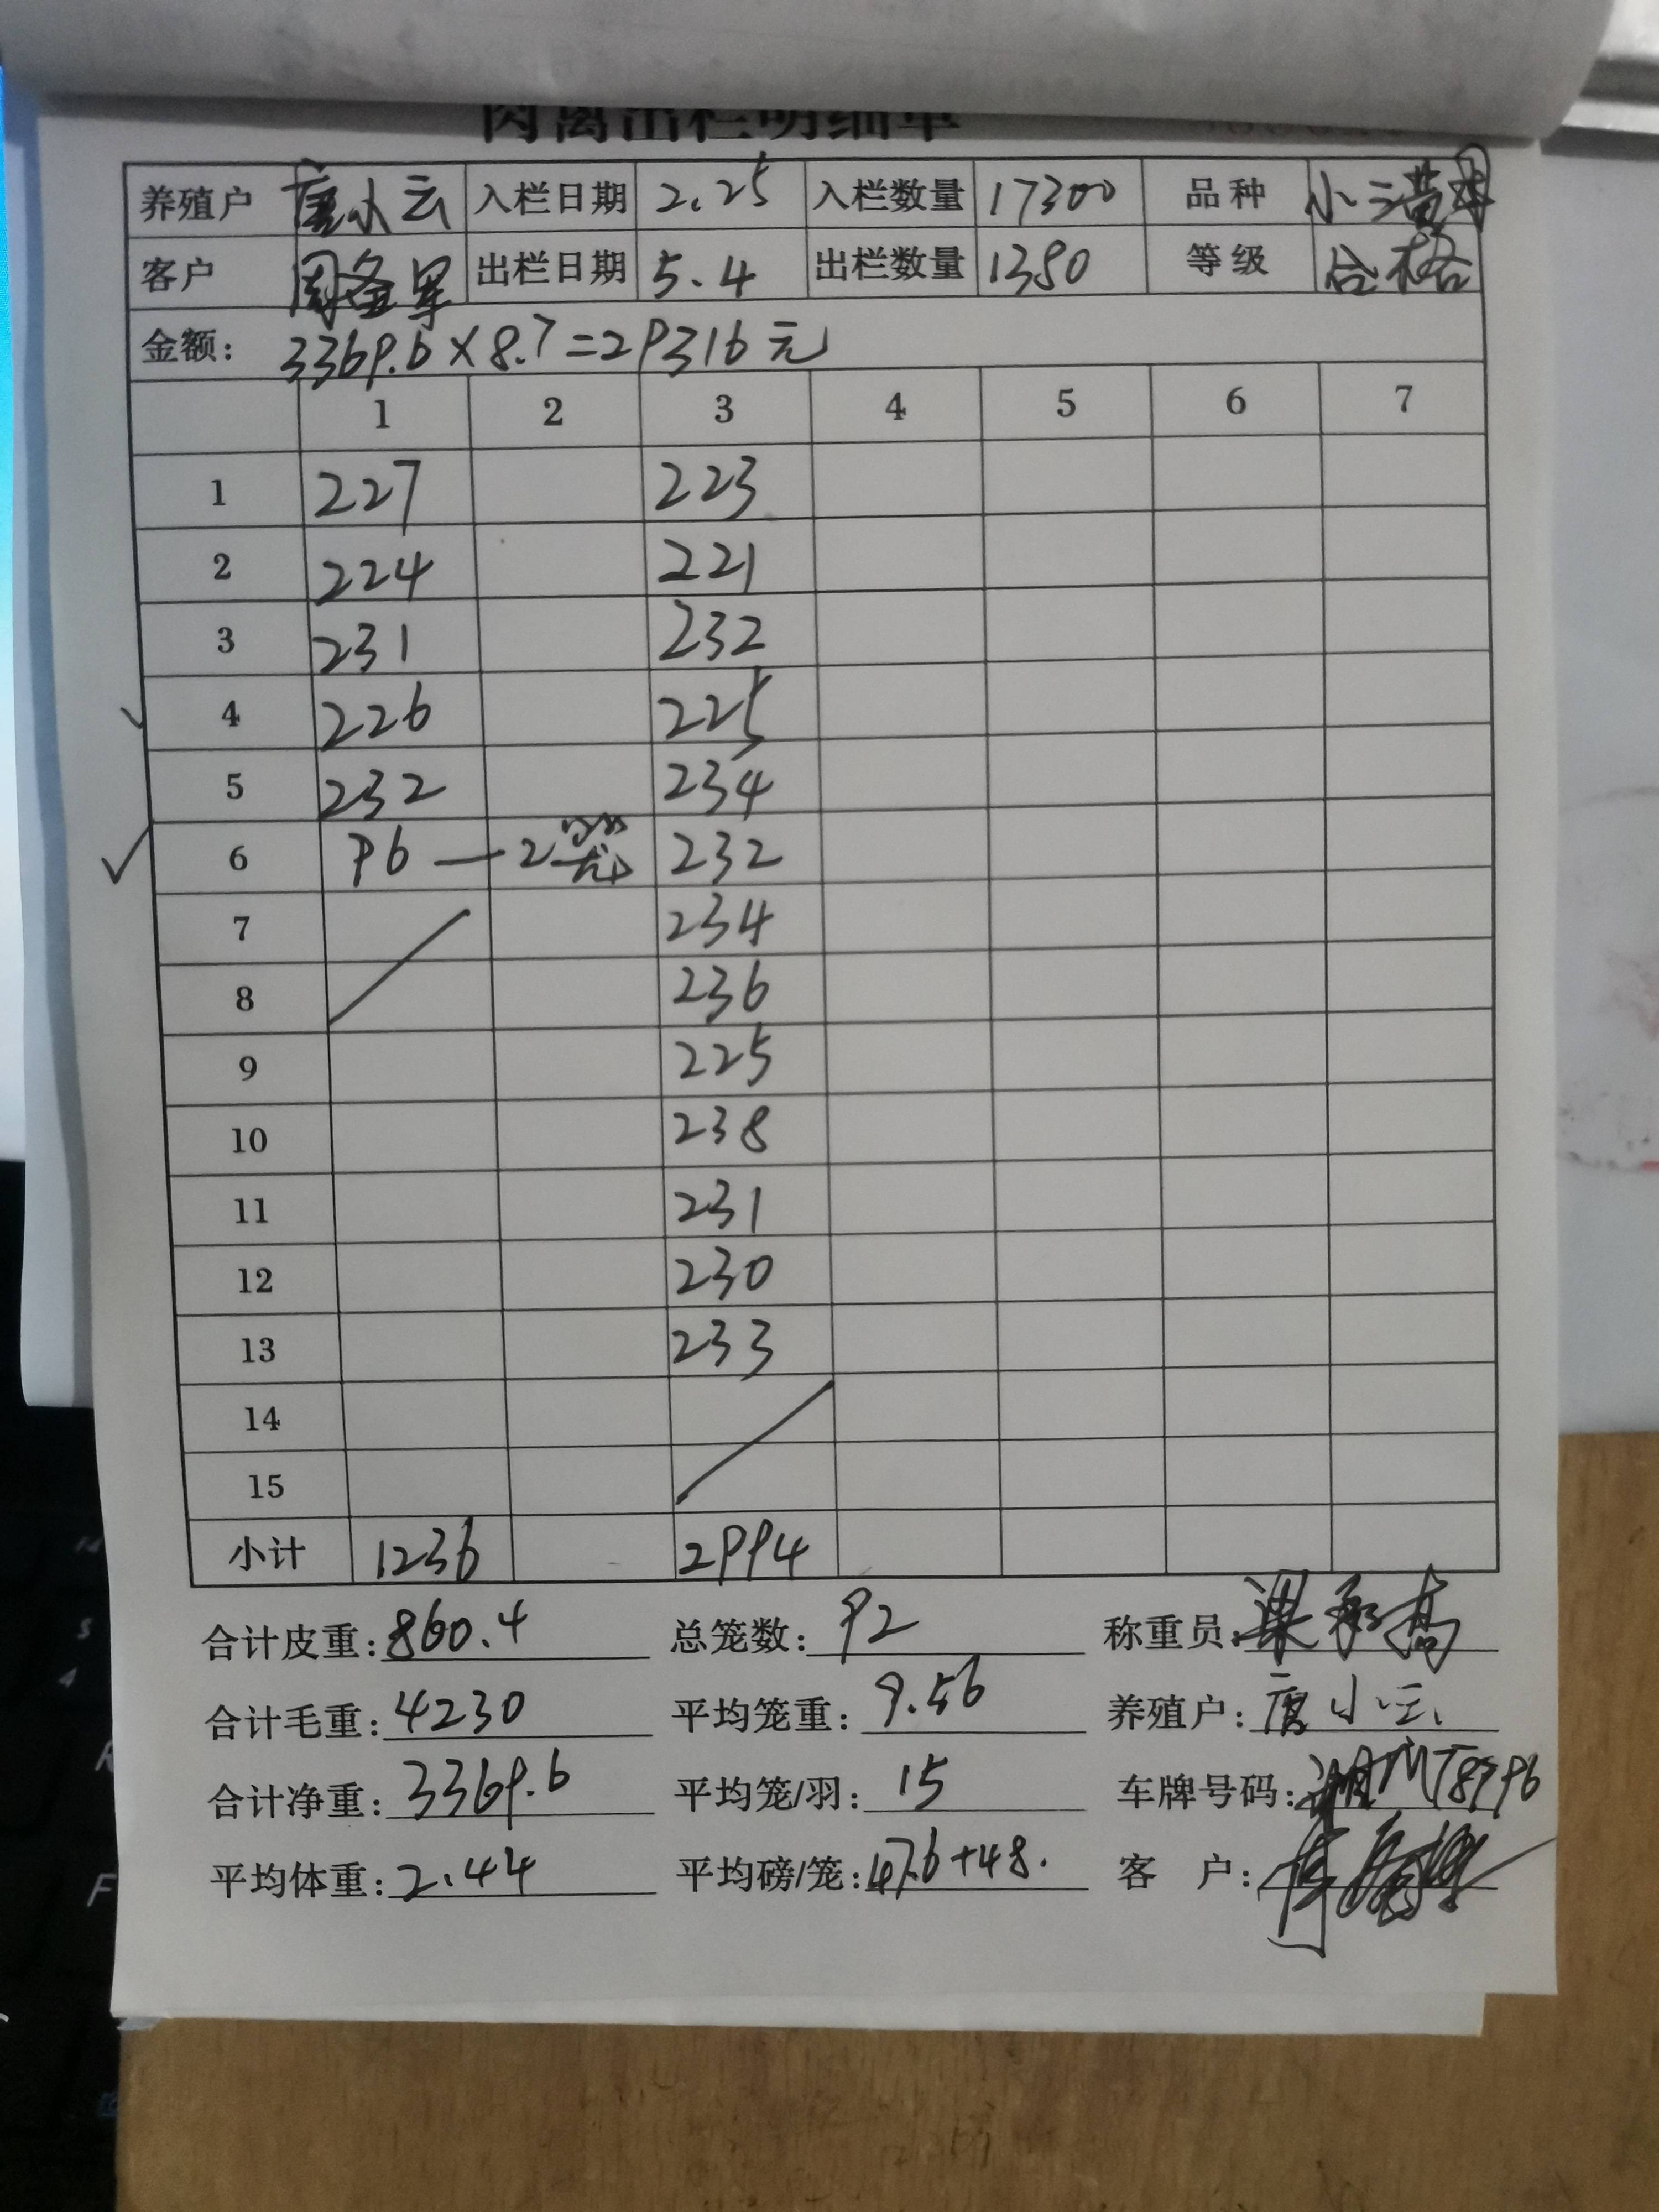 肉禽出栏明细单
养殖户 唐小云 入栏日期 2.25 入栏数量 17300 品种 小三黄母
客户 周金军 出栏日期 5.4 出栏数量 1380 等级 合格
金额: 3369.6×8.7=29316元
1 2 3 4 5 6 7
1 227 223
2 224 221
3 231 232
4 226 225
5 232 234
6 96 — 2笼 232
7 234
8 236
9 225
10 238
11 231
12 230
13 233
14
15
小计 1236 2994
合计皮重: 860.4 总笼数: 92 称重员:
合计毛重: 4230 平均笼重: 9.56 养殖户: 唐小云
合计净重: 3369.6 平均笼/羽: 15 车牌号码:
平均体重: 2.44 平均磅/笼: 47.6+48. 客 户: